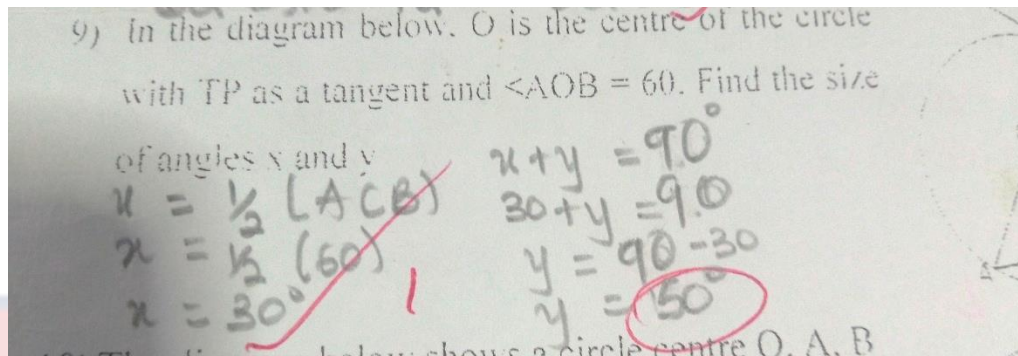 9) In the diagram below. O is the centre of the circle
with TP as a tangent and <AOB = 60. Find the size
of angles x and y
x = ½ (ACB)
x = ½ (60)
x = 30°
1
x + y = 90°
30 + y = 90
y = 90 - 30
y = 50°
circle centre O. A, B
A